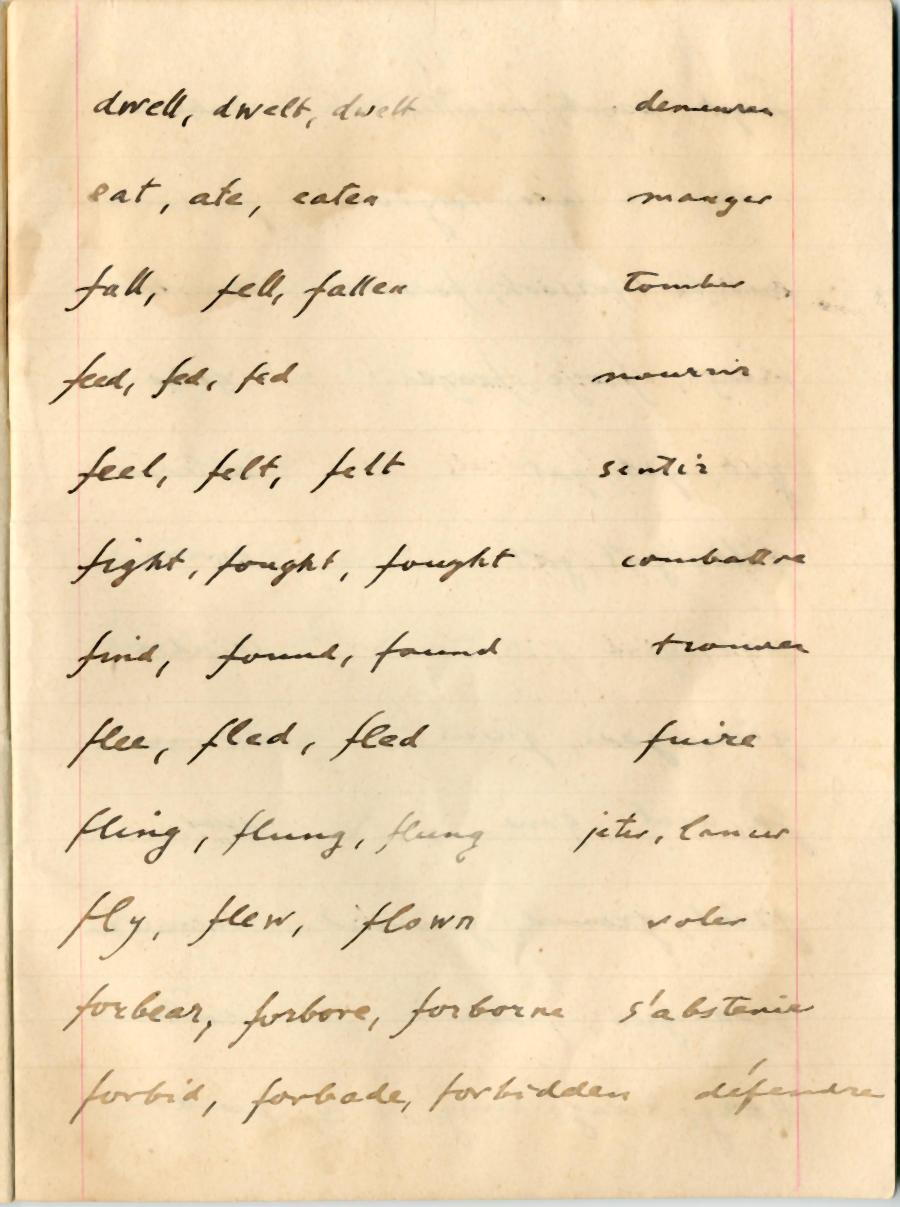 dwell, dwelt, dwelt demeurer
eat, ate, eaten manger
fall, fell, fallen tomber
feed, fed, fed nourrir
feel, felt, felt sentir
fight, fought, fought combattre
find, found, found trouver
flee, fled, fled fuire
fling, flung, flung jeter, lancer
fly, flew, flown voler
forbear, forbore, forborne s'abstenir
forbid, forbade, forbidden défendre